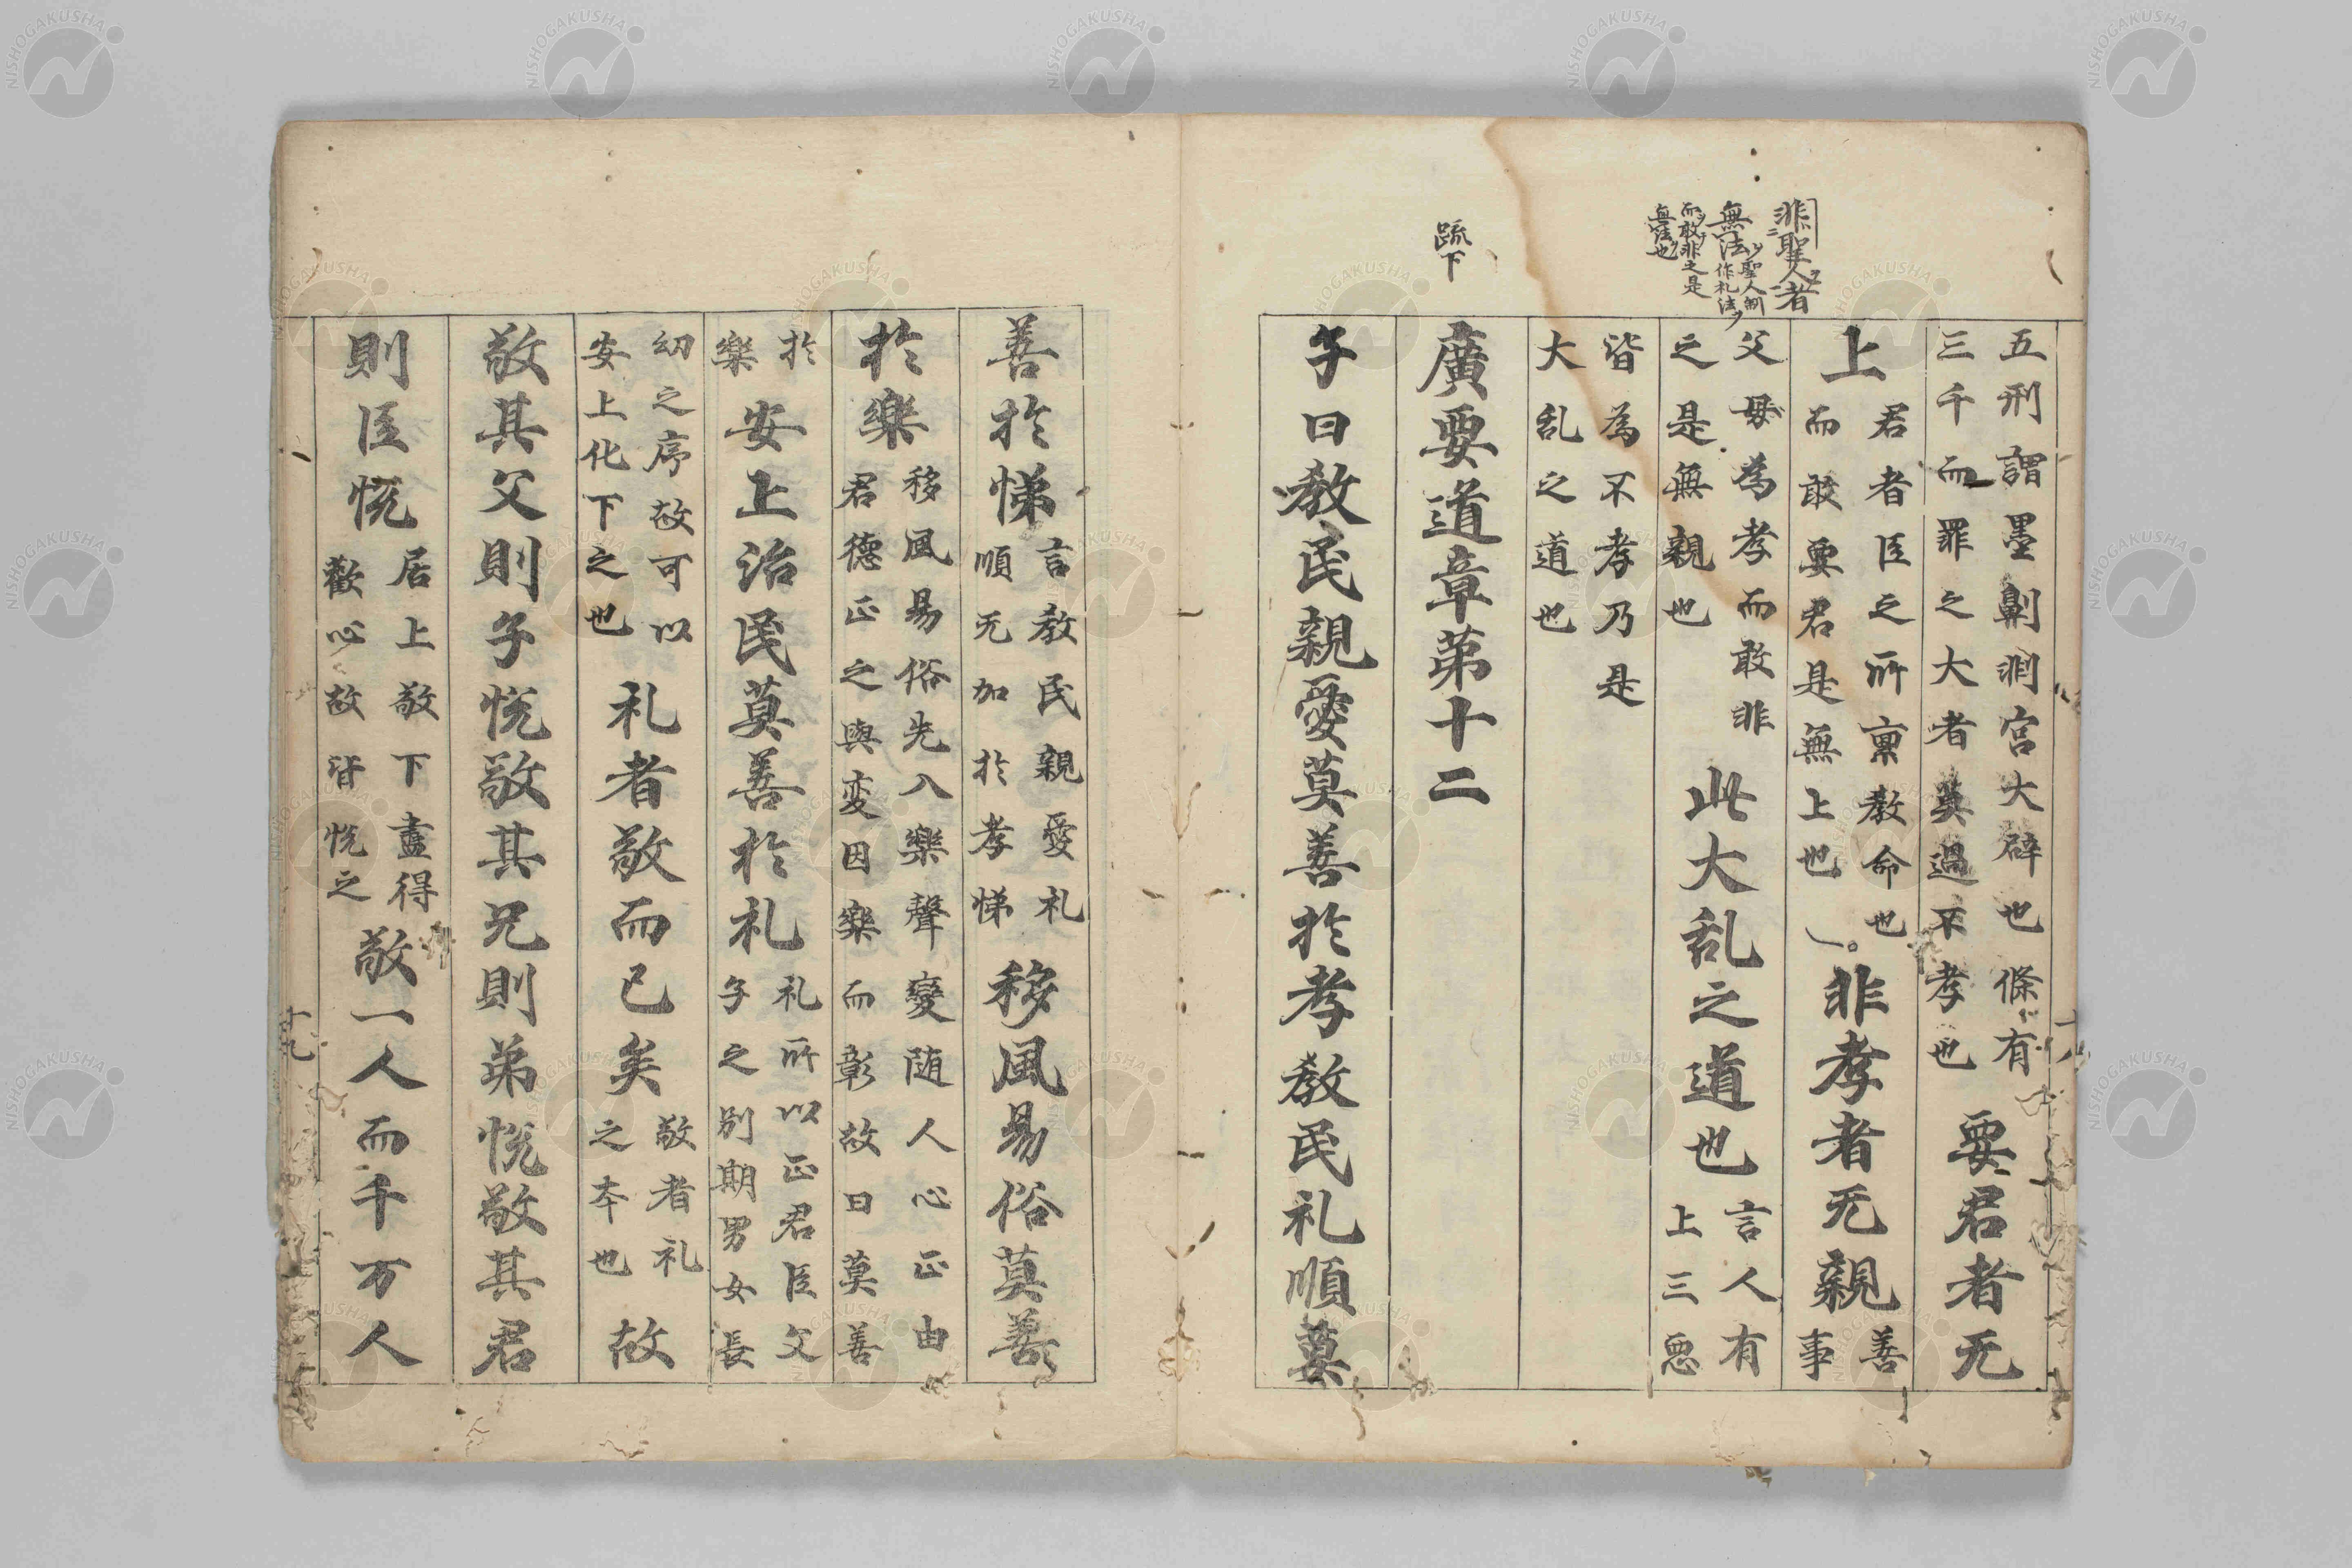 非聖人者
無法聖人制
作礼法
而敢非之是
無法也
疏下
五刑謂墨劓剕宮大辟也條有
三千而罪之大者莫過不孝也
要君者无
上
君者臣之所禀教命也
而敢要君是無上也
非孝者无親
善
事
父母為孝而敢非
之是無親也
此大乱之道也
言人有
上三惡
皆為不孝乃是
大乱之道也
廣要道章第十二
子曰教民親愛莫善於孝教民礼順莫
十八
善於悌
言教民親愛礼
順无加於孝悌
移風易俗莫善
於樂
移風易俗先入樂聲變随人心正由
君德正之與変因樂而彰故曰莫善
於
樂
安上治民莫善於礼
礼所以正君臣父
子之別期男女長
幼之序故可以
安上化下之也
礼者敬而已矣
敬者礼
之本也
故
敬其父則子悦敬其兄則弟悦敬其君
則臣悦
居上敬下盡得
歡心故皆悦之
敬一人而千万人
十九